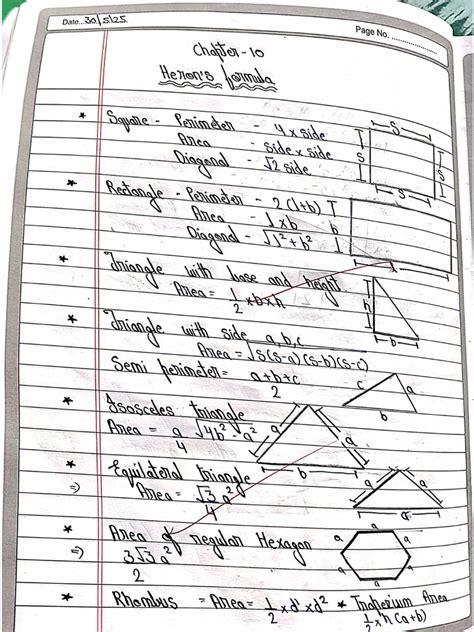 Date..30/5/25.
Page No. ............
Chapter - 10
Heron's formula
* Square - Perimeter - 4 x side
Area - side x side
Diagonal - √2 side
S S S S
* Rectangle - Perimeter - 2(l+b)
Area - l x b
Diagonal - √l²+b²
b l
* Triangle with base and height
Area = 1/2 x b x h
h
* Triangle with side a, b, c
Area = √s(s-a)(s-b)(s-c)
Semi perimeter = a+b+c/2
c a b
* Isosceles triangle
Area = a/4 √4b²-a²
a a b
* Equilateral triangle
⇒ Area = √3/4 a²
a a a
* Area of regular Hexagon
⇒ 3√3/2 a²
a a a a a a
* Rhombus = Area = 1/2 x d¹ x d² * Trapezium Area
1/2 x h (a+b)